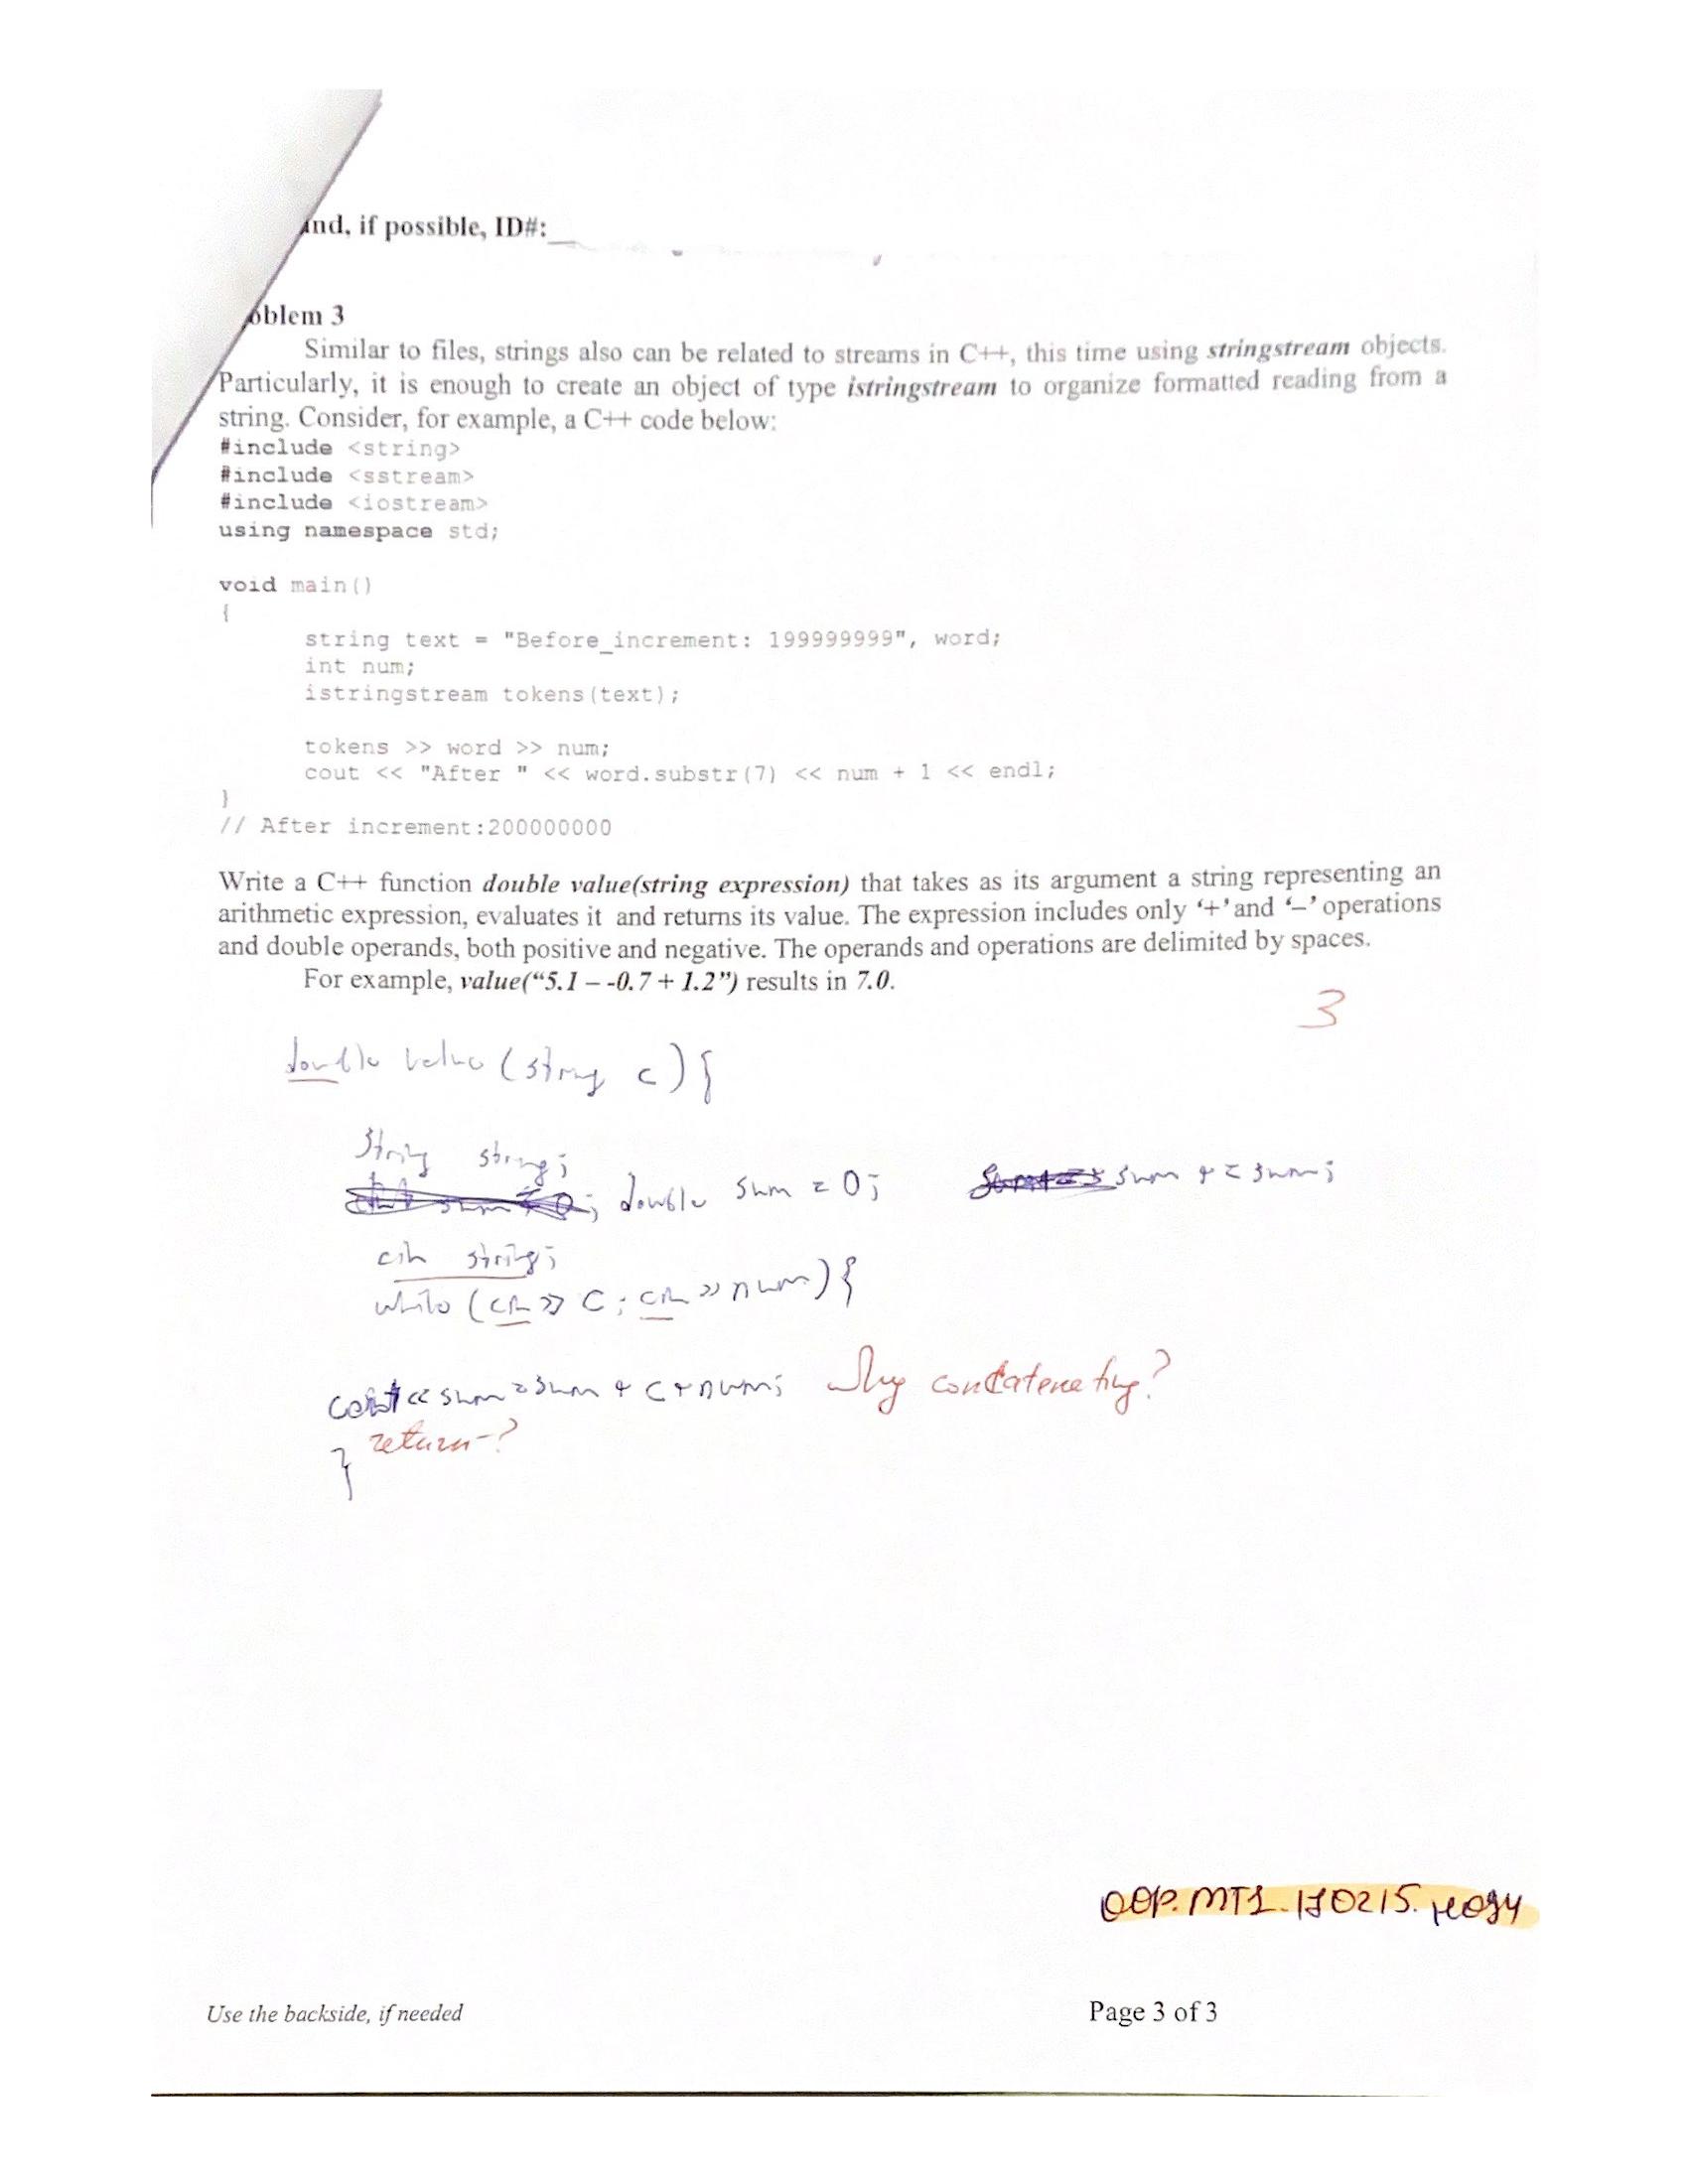 and, if possible, ID#:
oblem 3
Similar to files, strings also can be related to streams in C++, this time using stringstream objects.
Particularly, it is enough to create an object of type istringstream to organize formatted reading from a
string. Consider, for example, a C++ code below:
#include <string>
#include <sstream>
#include <iostream>
using namespace std;
void main()
{
string text = "Before_increment: 199999999", word;
int num;
istringstream tokens(text);
tokens >> word >> num;
cout << "After " << word.substr(7) << num + 1 << endl;
}
// After increment:200000000
Write a C++ function double value(string expression) that takes as its argument a string representing an
arithmetic expression, evaluates it and returns its value. The expression includes only ‘+’ and ‘–’ operations
and double operands, both positive and negative. The operands and operations are delimited by spaces.
For example, value(“5.1 – -0.7 + 1.2”) results in 7.0.
3
double value (string c) {
String string;
double sum = 0; sum += sum;
cin string;
while (cin >> C; cin >> num) {
cout << sum = sum + c + num; Why concatenating?
return-?
}
OOP. MT1. 170215.
Use the backside, if needed
Page 3 of 3